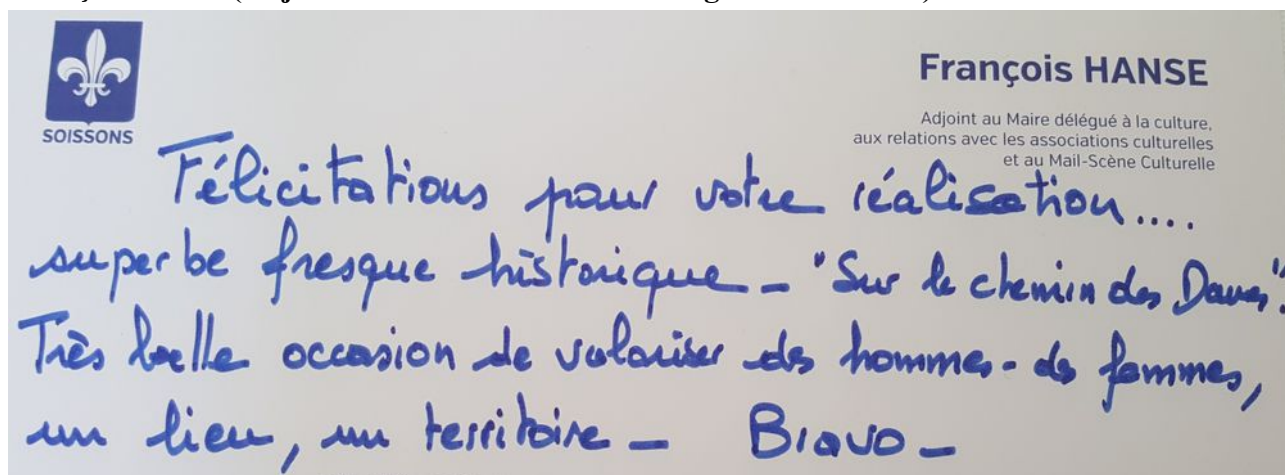 SOISSONS
François HANSE
Adjoint au Maire délégué à la culture,
aux relations avec les associations culturelles
et au Mail-Scène Culturelle
Félicitations pour votre réalisation....
superbe fresque historique - "Sur le chemin des Dames".
Très belle occasion de valoriser des hommes - des femmes,
un lieu, un territoire - Bravo -